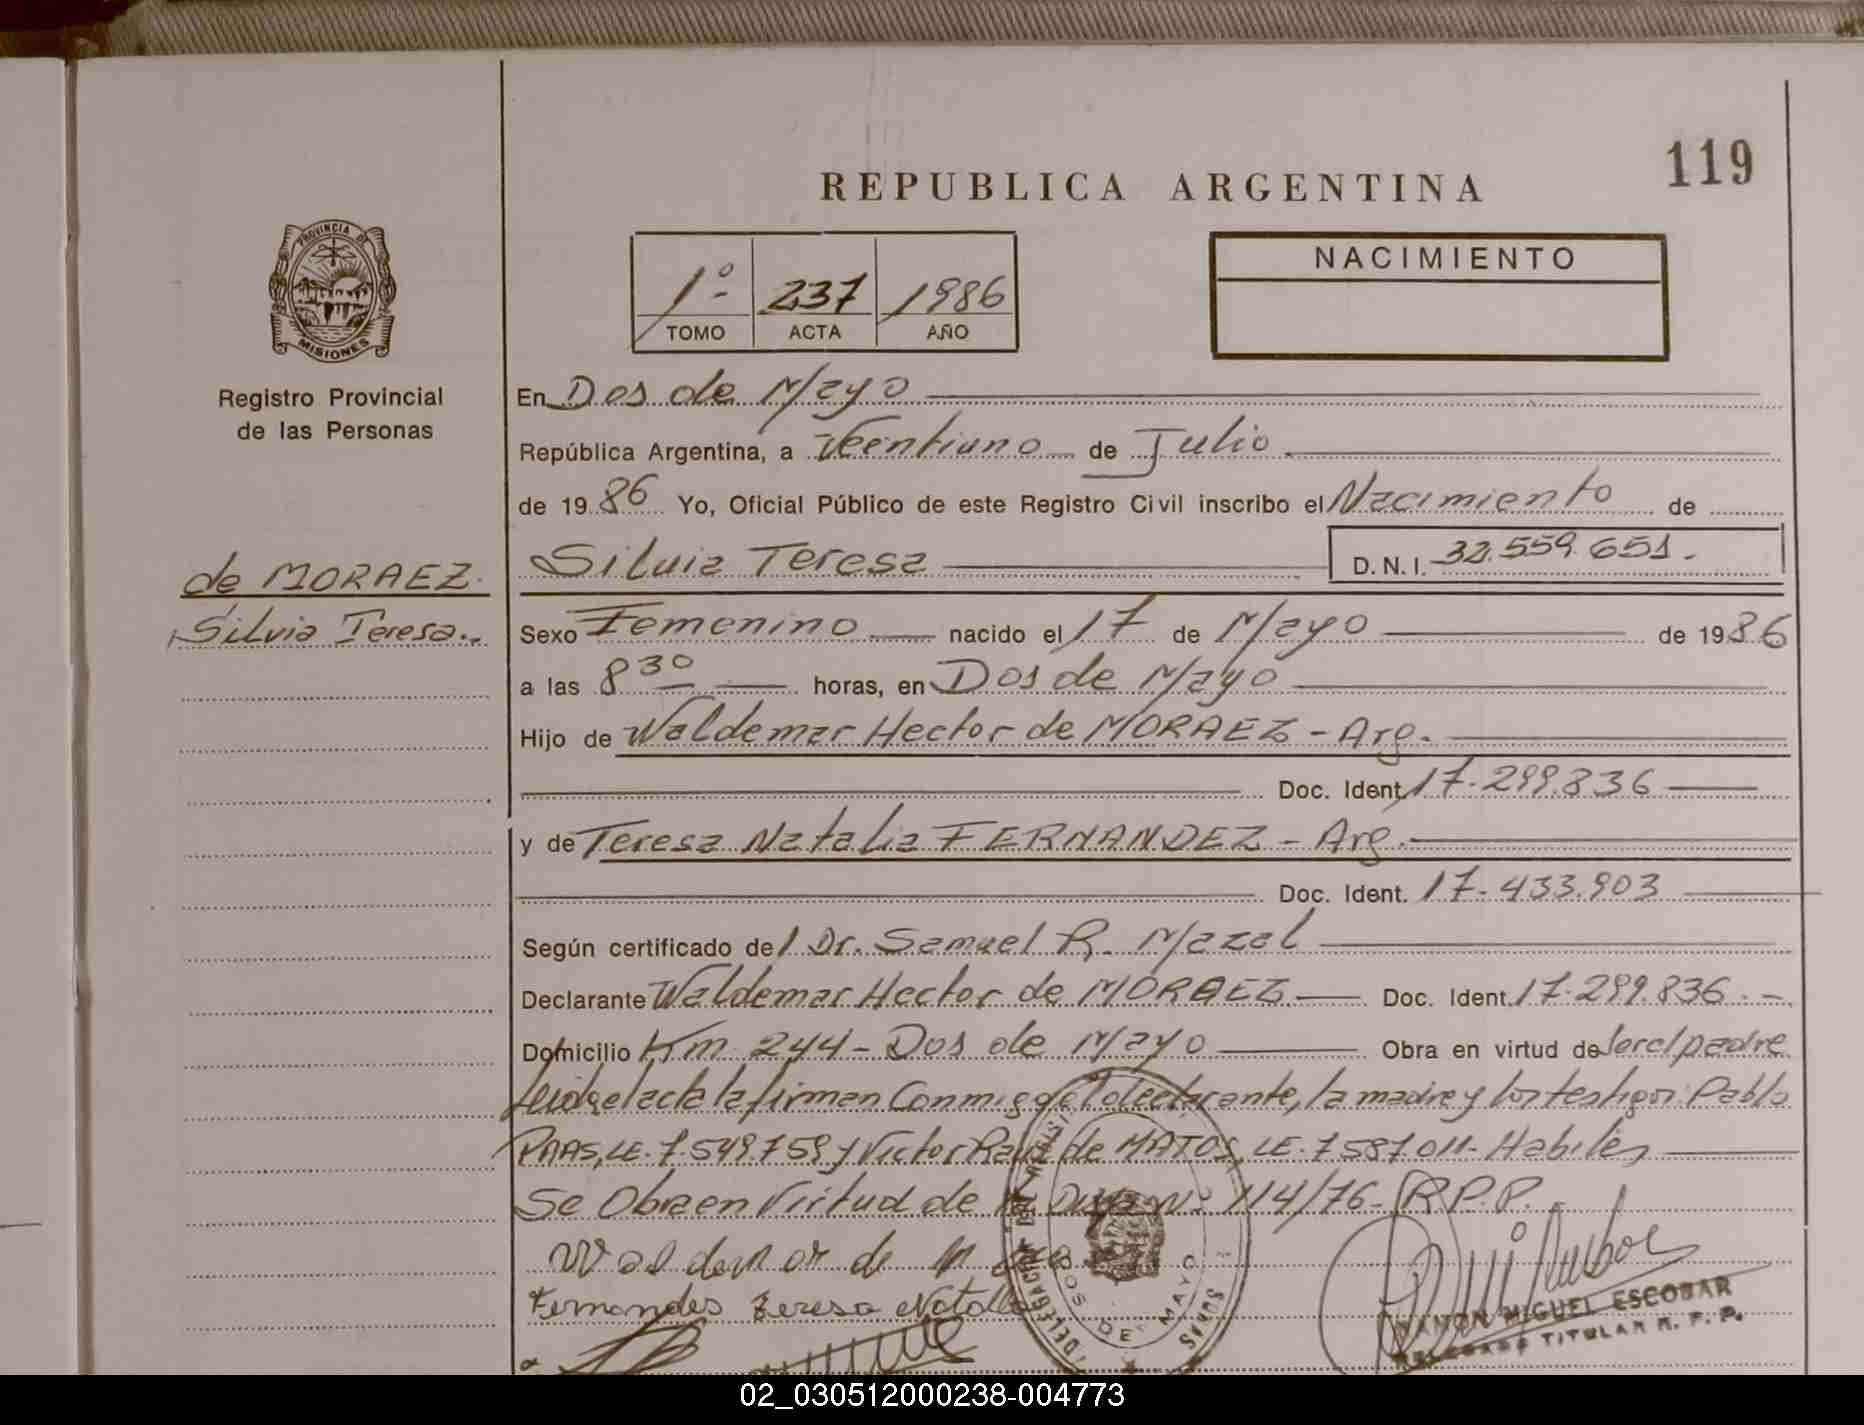 119
REPUBLICA ARGENTINA
PROVINCIA DE
MISIONES
Registro Provincial
de las Personas
1º 237 1986
TOMO ACTA AÑO
NACIMIENTO
En Dos de Mayo
República Argentina, a Veentiuno de Julio
de 1986 Yo, Oficial Público de este Registro Civil inscribo el Nacimiento de
de MORAEZ
Silvia Teresa
Silvia Teresa D.N.I. 32.559.651.
Sexo Femenino nacido el 17 de Mayo de 1986
a las 8 30 horas, en Dos de Mayo
Hijo de Waldemar Hector de MORAEZ - Arg.
Doc. Ident. 17.299.836
y de Teresa Natalia FERNANDEZ - Arg.
Doc. Ident. 17.433.903
Según certificado del Dr. Samuel R. Mazal
Declarante Waldemar Hector de MORAEZ Doc. Ident. 17.299.836.-
Domicilio Km 244 - Dos de Mayo Obra en virtud de ser el padre
Leida el acta la firman Conmigo el declarante, la madre y los testigos: Pablo
PAAS, LE. 7.549.759 y Victor Raul de MATOS, LE. 7587011 - Habiles
Se Obra en Virtud de la Nº 114/76 - R.P.P.
Waldemar de
Fernandes Teresa Natalia
DOS DE MAYO
RAMON MIGUEL ESCOBAR
DELEGADO TITULAR R. P. P.
02_030512000238-004773